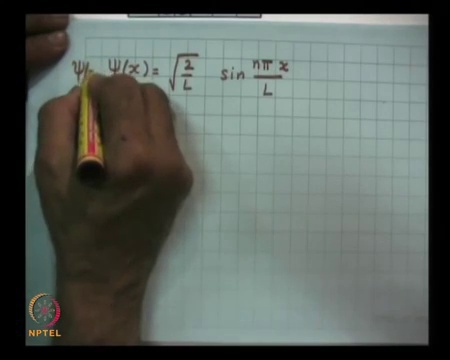 Ψ Ψ(x) = √(2/L) sin nπx/L
NPTEL